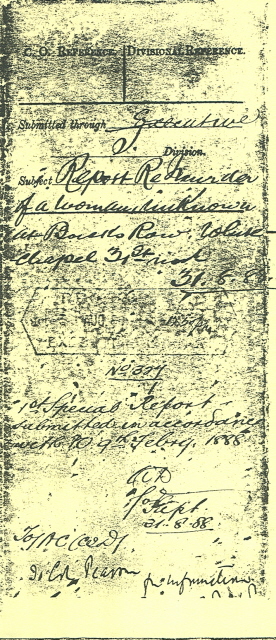 C. O. REFERENCE. DIVISIONAL REFERENCE.
Submitted through Executive
J. Division.
Subject Report Re Murder
of a woman unknown
at Bucks Row, White-
chapel 31st inst
31.8.88
No 377
1st Special Report
submitted in accordance
with P.O. 9th Febry. 1888
Supt
31-8-88
To A C (C&D)
for information